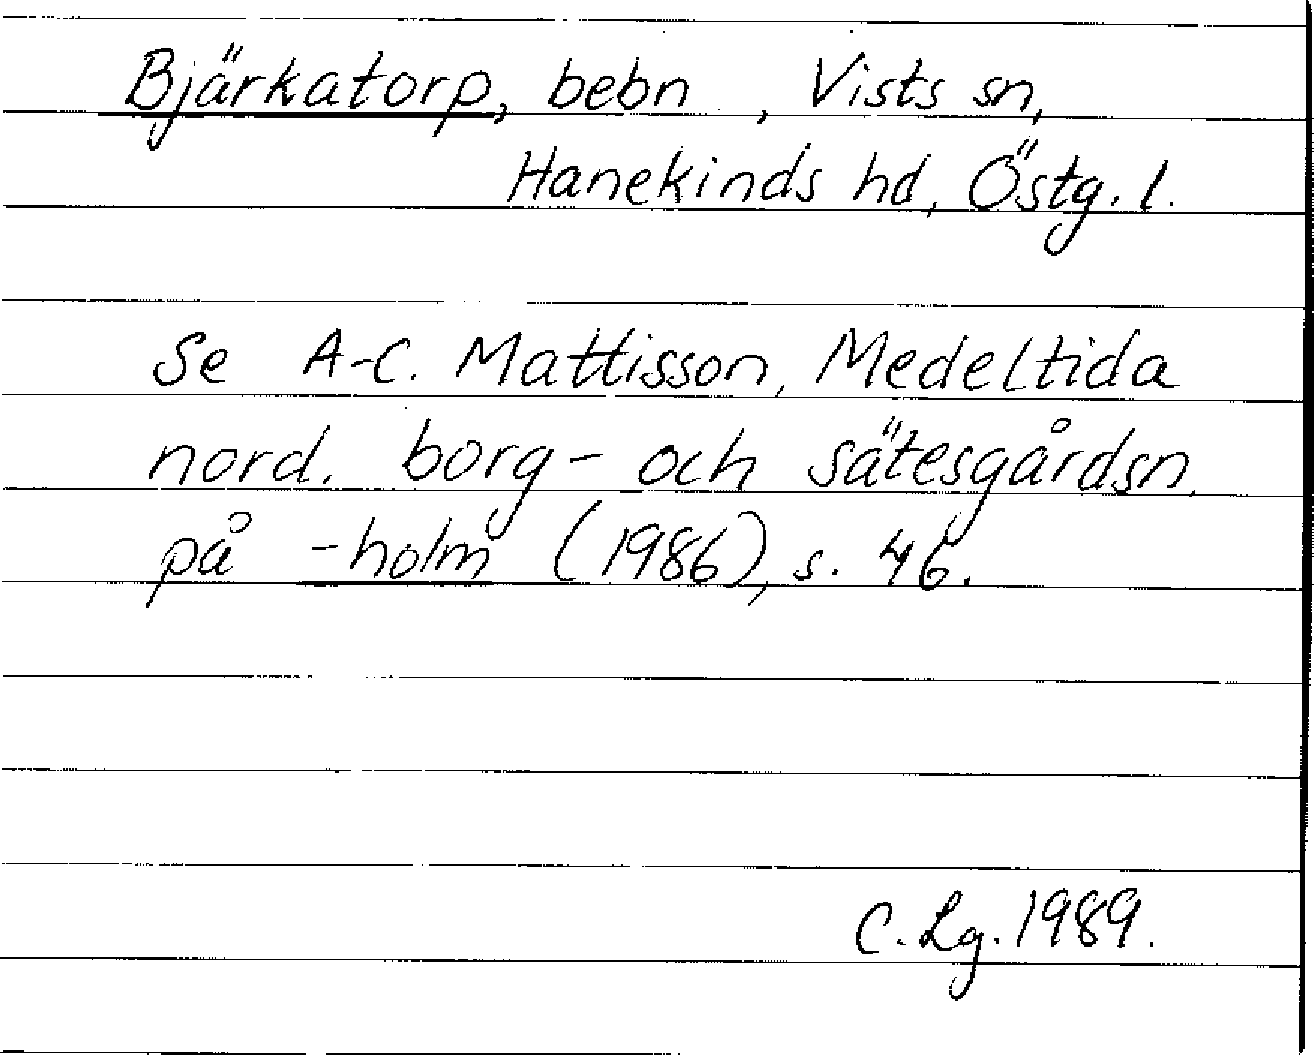 Bjärkatorp, bebn , Vists sn,
Hanekinds hd, Östg. l.
Se A-C. Mattisson, Medeltida
nord. borg- och sätesgårdsn.
på -holm (1986), s. 46.
C. Lg. 1989.